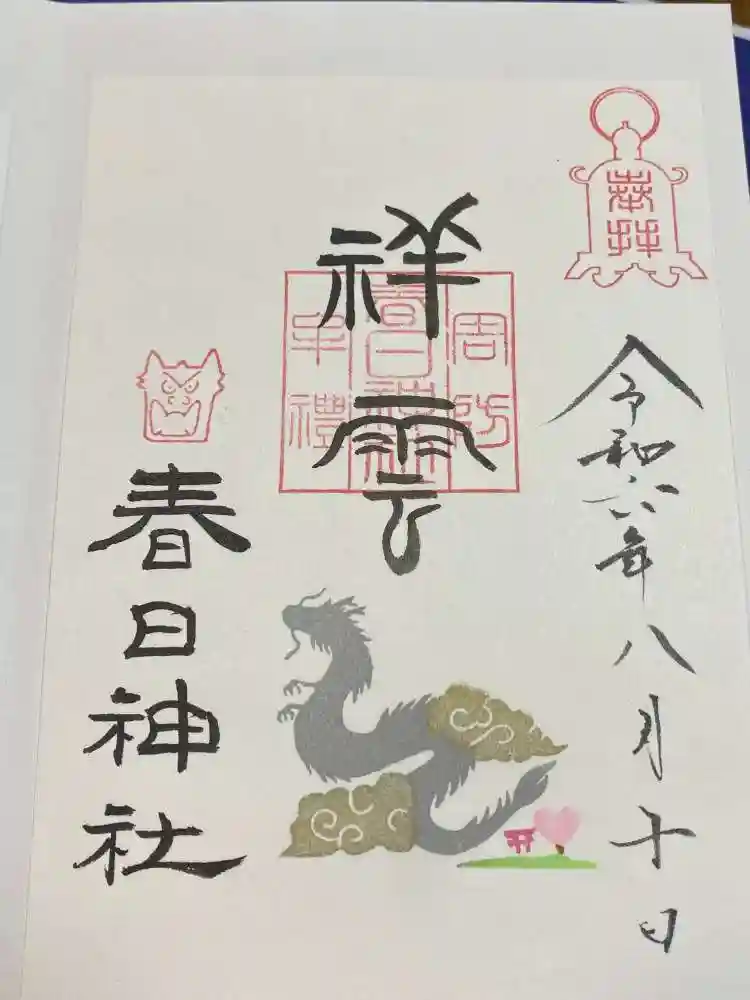 奉拝
令和六年八月十日
周防
春日神社
牟禮
祥雲
春日神社